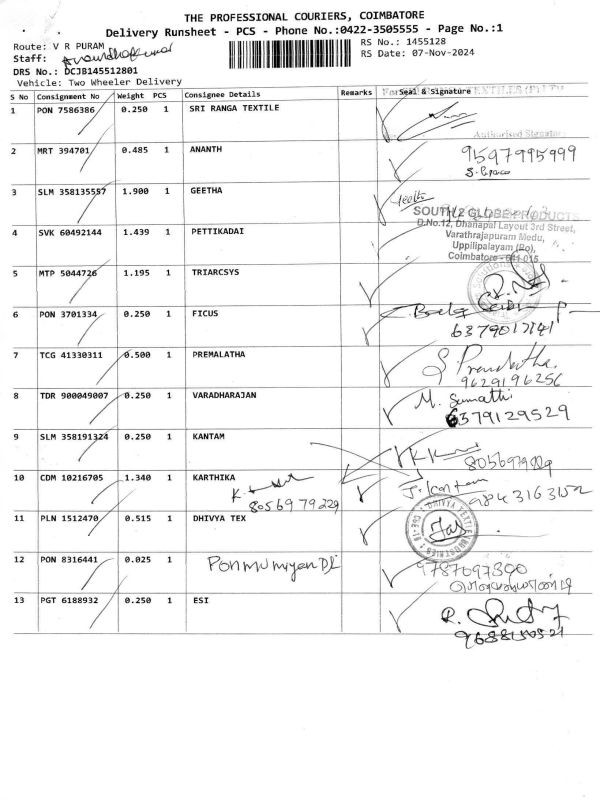 THE PROFESSIONAL COURIERS, COIMBATORE
Delivery Runsheet - PCS - Phone No.:0422-3505555 - Page No.:1
Route: V R PURAM
RS No.: 1455128
Staff:
RS Date: 07-Nov-2024
DRS No.: DCJB145512801
Vehicle: Two Wheeler Delivery
S No Consignment No Weight PCS Consignee Details Remarks Seal & Signature
1 PON 7586386 0.250 1 SRI RANGA TEXTILE
Authorised Signatory
2 MRT 394701 0.485 1 ANANTH 9597995999
3 SLM 358135557 1.900 1 GEETHA Geetha
SOUTHZ GLOBE PRODUCTS
D.No.12, Dhanapal Layout 3rd Street,
Varathrajapuram Medu,
Uppilipalayam (Po),
Coimbatore - 641 015
4 SVK 60492144 1.439 1 PETTIKADAI
5 MTP 5044726 1.195 1 TRIARCSYS
6 PON 3701334 0.250 1 FICUS
7 TCG 41330311 0.500 1 PREMALATHA S. Premlatha.
9629196256
8 TDR 900049007 0.250 1 VARADHARAJAN M. Sumathi
6379129529
9 SLM 358191324 0.250 1 KANTAM
8056979229
10 CDM 10216705 1.340 1 KARTHIKA J. Kantam
8056979229
11 PLN 1512470 0.515 1 DHIVYA TEX
12 PON 8316441 0.025 1 PONMUNIYANDI 9787097300
13 PGT 6188932 0.250 1 ESI